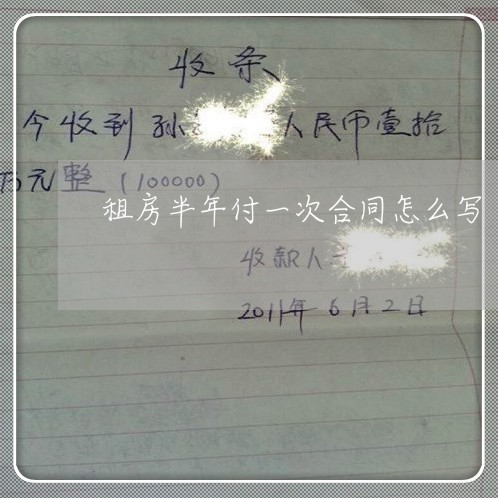 收条
今收到孙 人民币壹拾
万元整(100000)
租房半年付一次合同怎么写
收款人
2011年6月2日